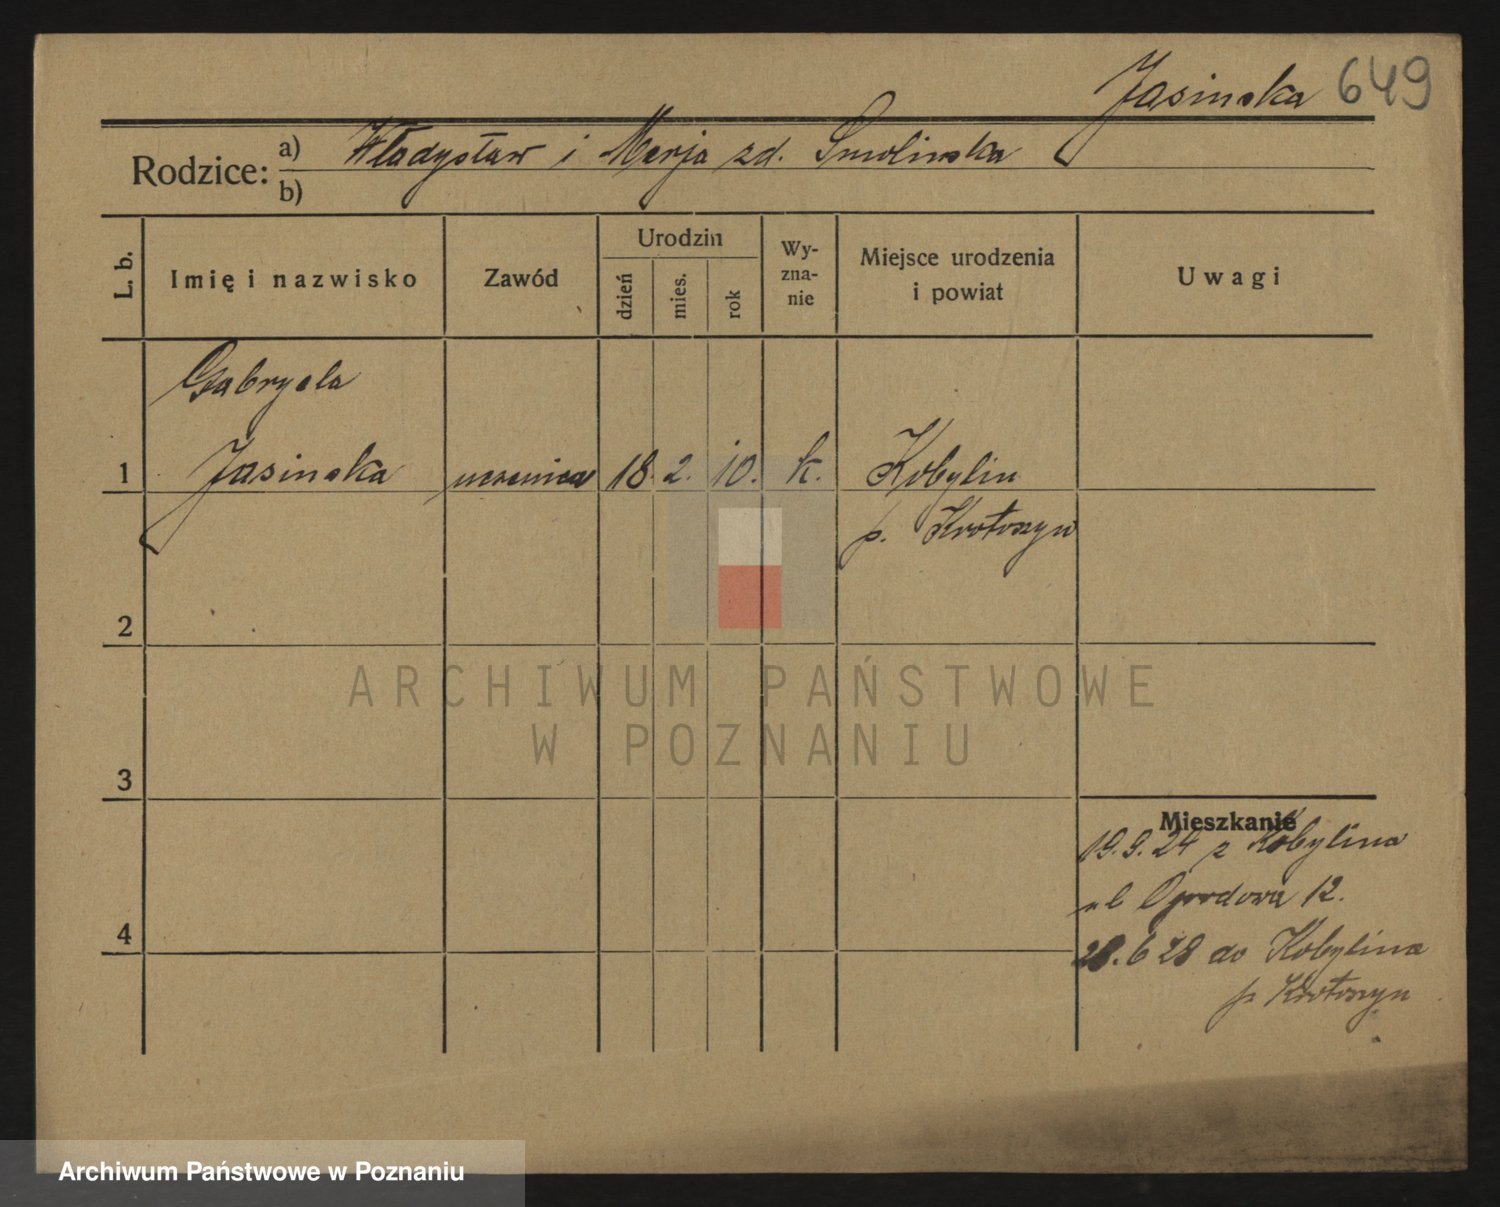 Jasinska 649
Rodzice: a) Władysław i Marja zd. Smolinska
b)
L. b. Imię i nazwisko Zawód Urodzin dzień mies. rok Wy-zna-nie Miejsce urodzenia i powiat Uwagi
Gabryela
1 Jasinska uczenica 18. 2. 10. k. Kobylin
p. Krotoszyn
2
ARCHIWUM PAŃSTWOWE
W POZNANIU
3
Mieszkanie
19.9.24 z Kobylina
ul Ogrodowa 12.
4
28.6 28 do Kobylina
p. Krotoszyn
Archiwum Państwowe w Poznaniu